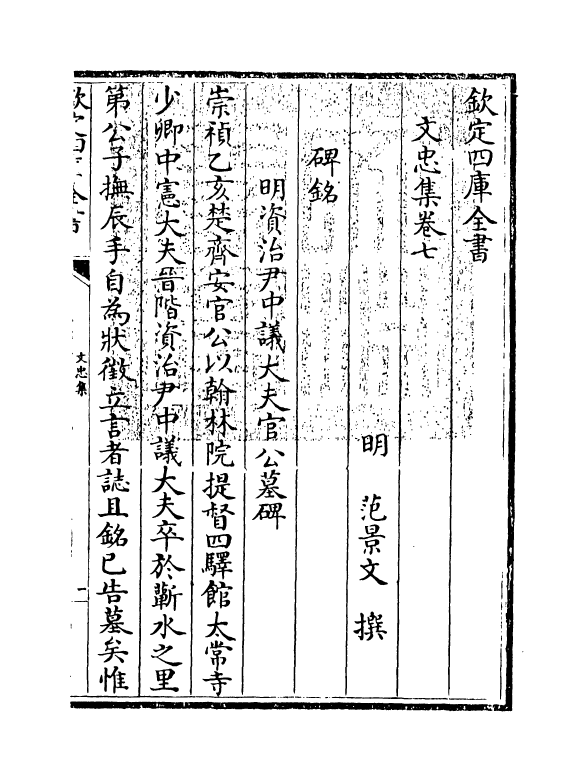 欽定四庫全書
文忠集卷七
明 范景文 撰
碑銘
明資治尹中議大夫官公墓碑
崇禎乙亥楚齊安官公以翰林院提督四驛館太常寺
少卿中憲大夫晉階資治尹中議大夫卒於蘄水之里
第公子撫辰手自為狀徵立言者誌且銘已告墓矣惟
文忠集